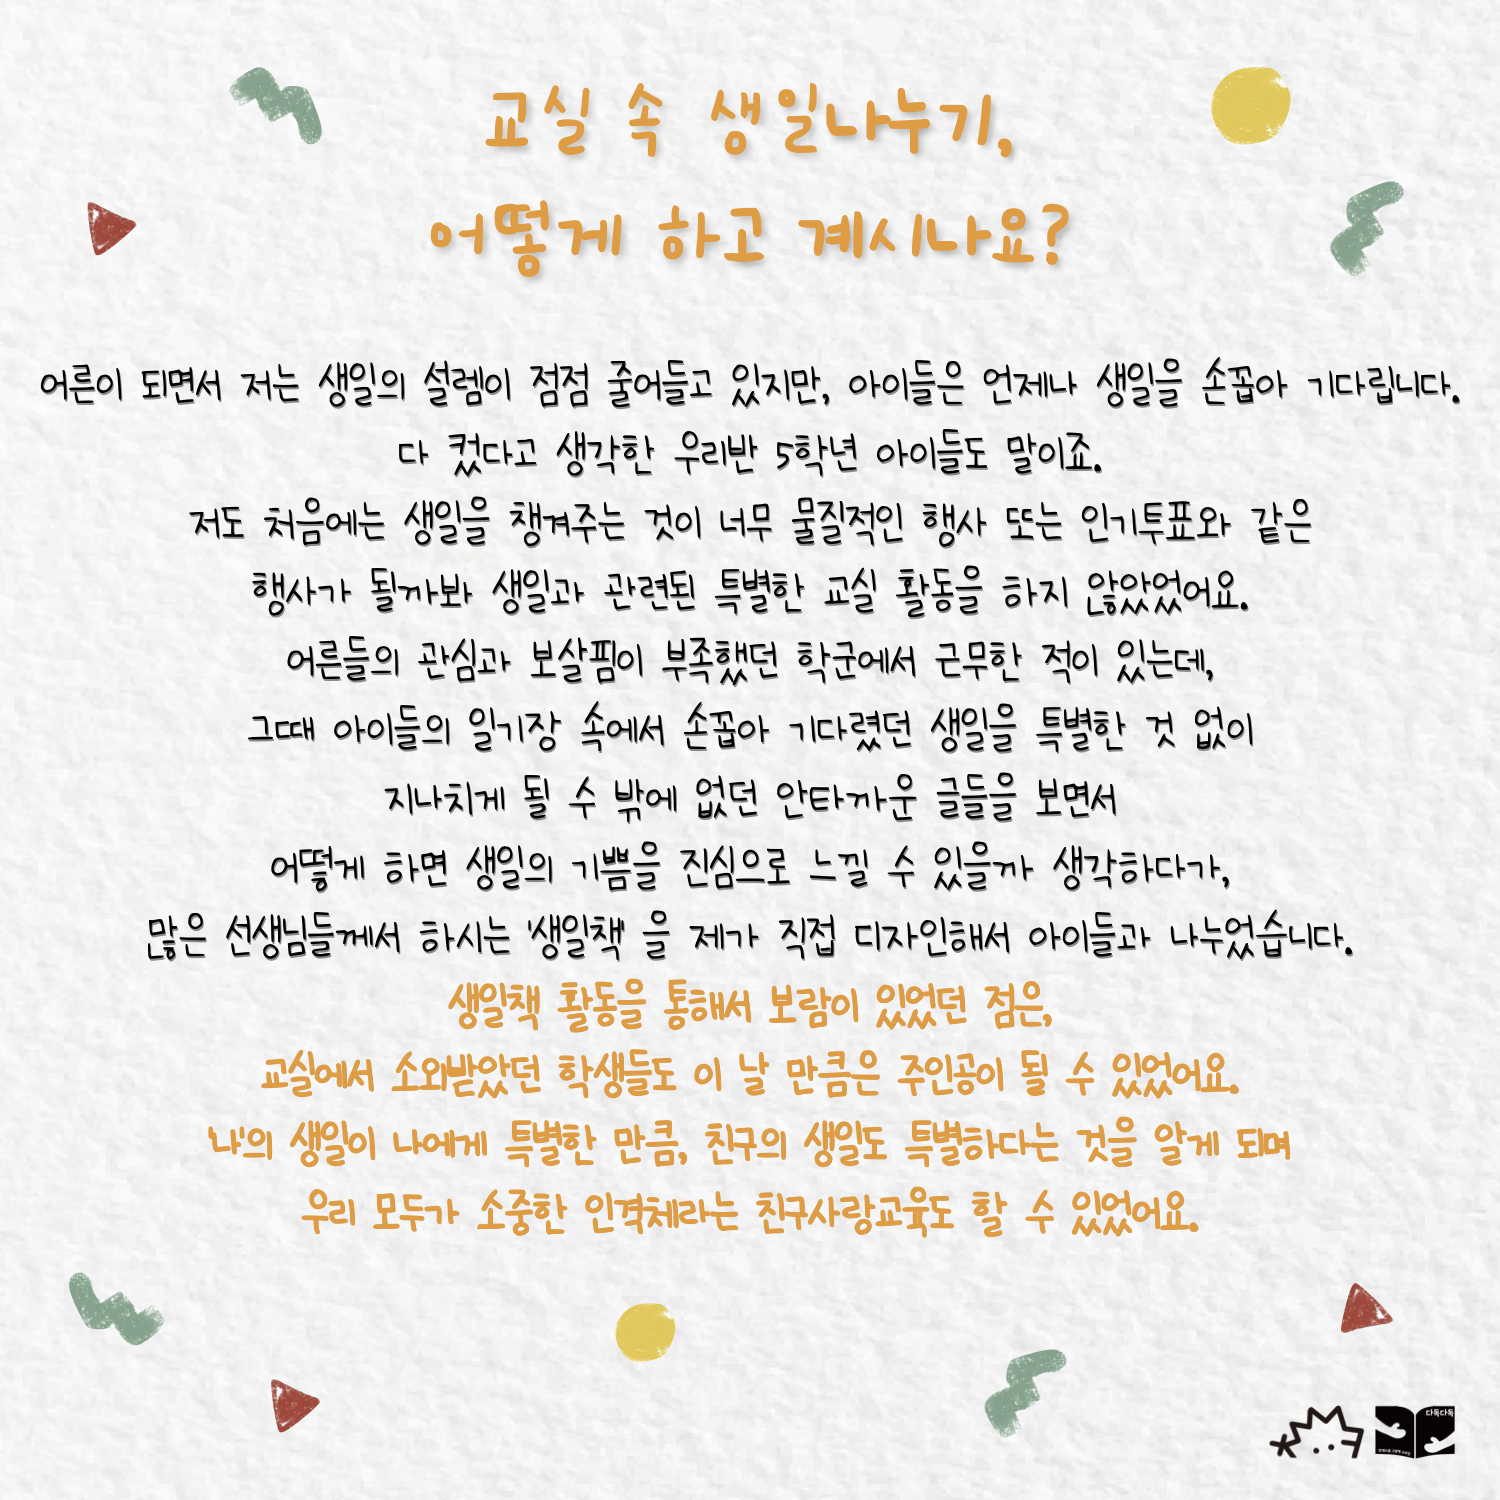 교실 속 생일나누기,
어떻게 하고 계시나요?
어른이 되면서 저는 생일의 설렘이 점점 줄어들고 있지만, 아이들은 언제나 생일을 손꼽아 기다립니다.
다 컸다고 생각한 우리반 5학년 아이들도 말이죠.
저도 처음에는 생일을 챙겨주는 것이 너무 물질적인 행사 또는 인기투표와 같은
행사가 될까봐 생일과 관련된 특별한 교실 활동을 하지 않았었어요.
어른들의 관심과 보살핌이 부족했던 학군에서 근무한 적이 있는데,
그때 아이들의 일기장 속에서 손꼽아 기다렸던 생일을 특별한 것 없이
지나치게 될 수 밖에 없던 안타까운 글들을 보면서
어떻게 하면 생일의 기쁨을 진심으로 느낄 수 있을까 생각하다가,
많은 선생님들께서 하시는 '생일책' 을 제가 직접 디자인해서 아이들과 나누었습니다.
생일책 활동을 통해서 보람이 있었던 점은,
교실에서 소외받았던 학생들도 이 날 만큼은 주인공이 될 수 있었어요.
'나'의 생일이 나에게 특별한 만큼, 친구의 생일도 특별하다는 것을 알게 되며
우리 모두가 소중한 인격체라는 친구사랑교육도 할 수 있었어요.
다독다독